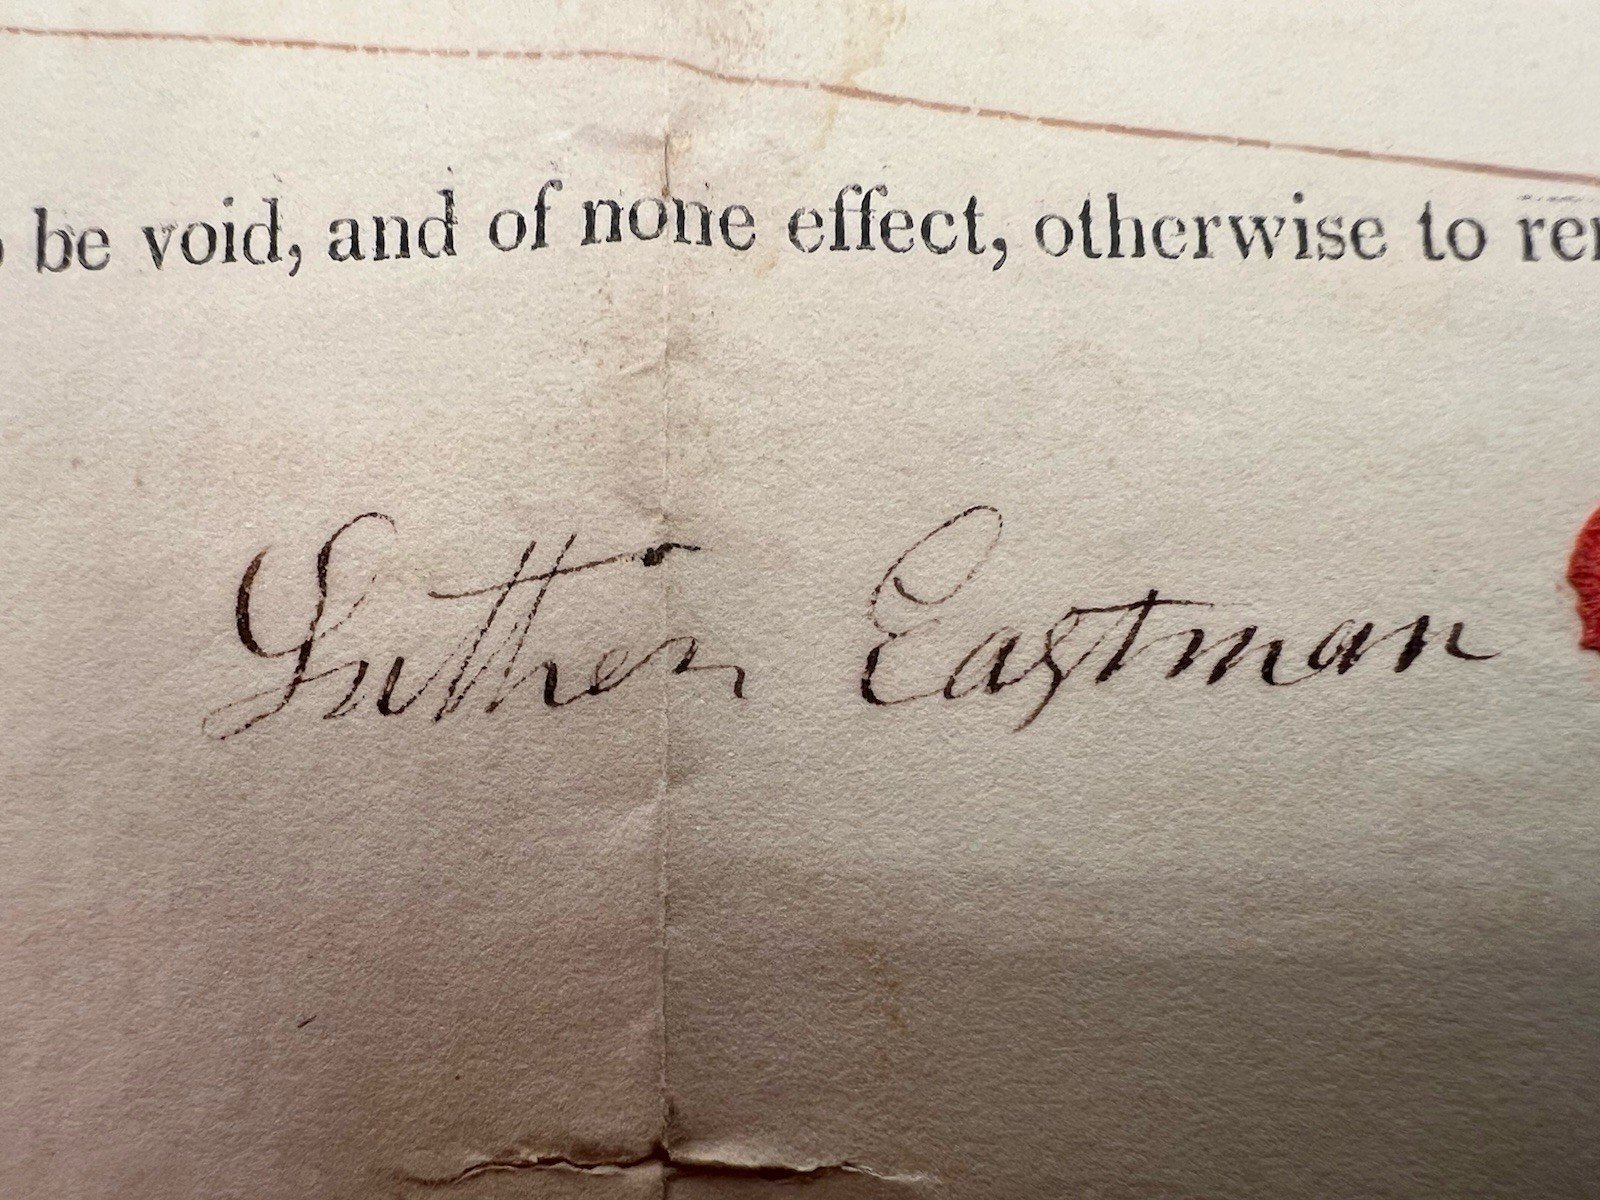 be void, and of none effect, otherwise to
Luther Eastman